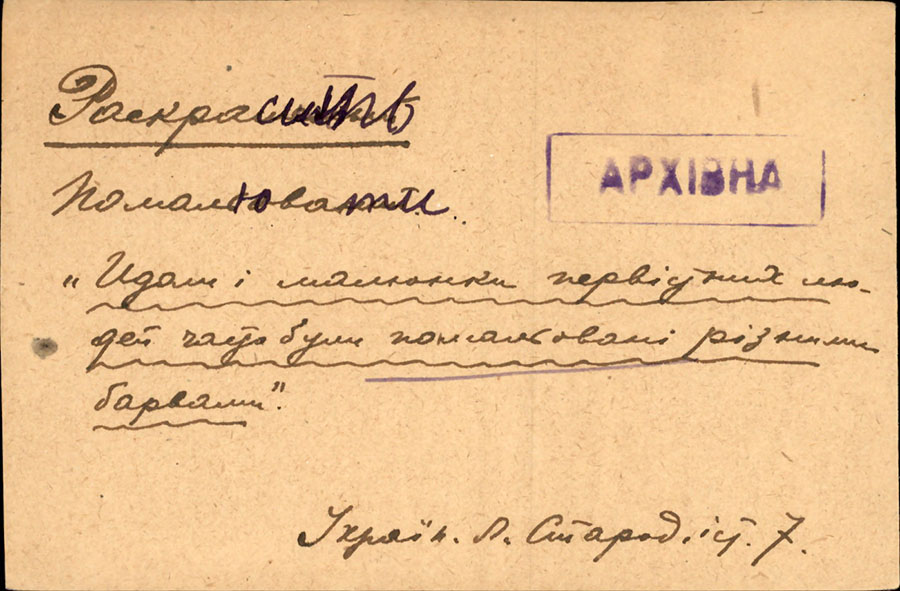 Раскрасить
АРХІВНА
Помальовати.
„Идоли і малюнки первістних лю-
дей часто були помальовані різними
барвами".
Україн. Л. Старод. іст. 7.